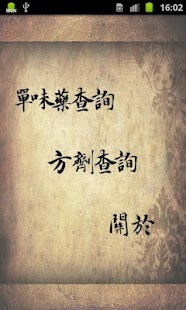 16:02
單味藥查詢
方劑查詢
關於